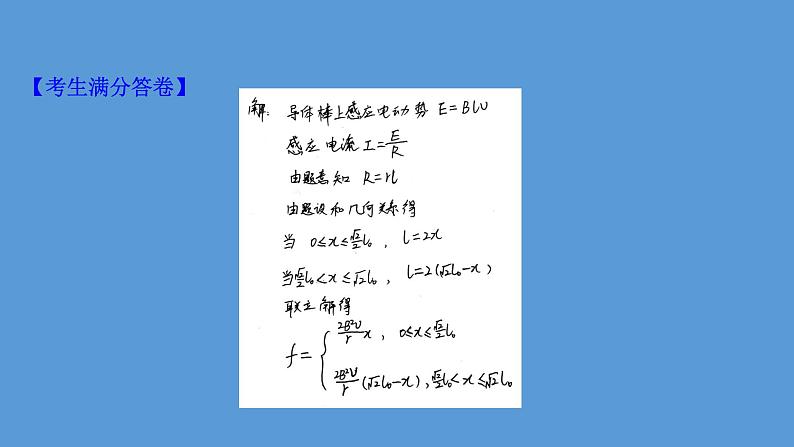 【考生满分答卷】
解: 导体棒上感应电动势 E=Blv
感应电流 I=E/R
由题意知 R=rl
由题设和几何关系得
当 0≤x≤√2/2 l₀ , l=2x
当√2/2 l₀<x≤√2 l₀ , l=2(√2 l₀-x)
联立解得
f= { 2B²v/r x , 0≤x≤√2/2 l₀
2B²v/r (√2 l₀-x) , √2/2 l₀<x≤√2 l₀